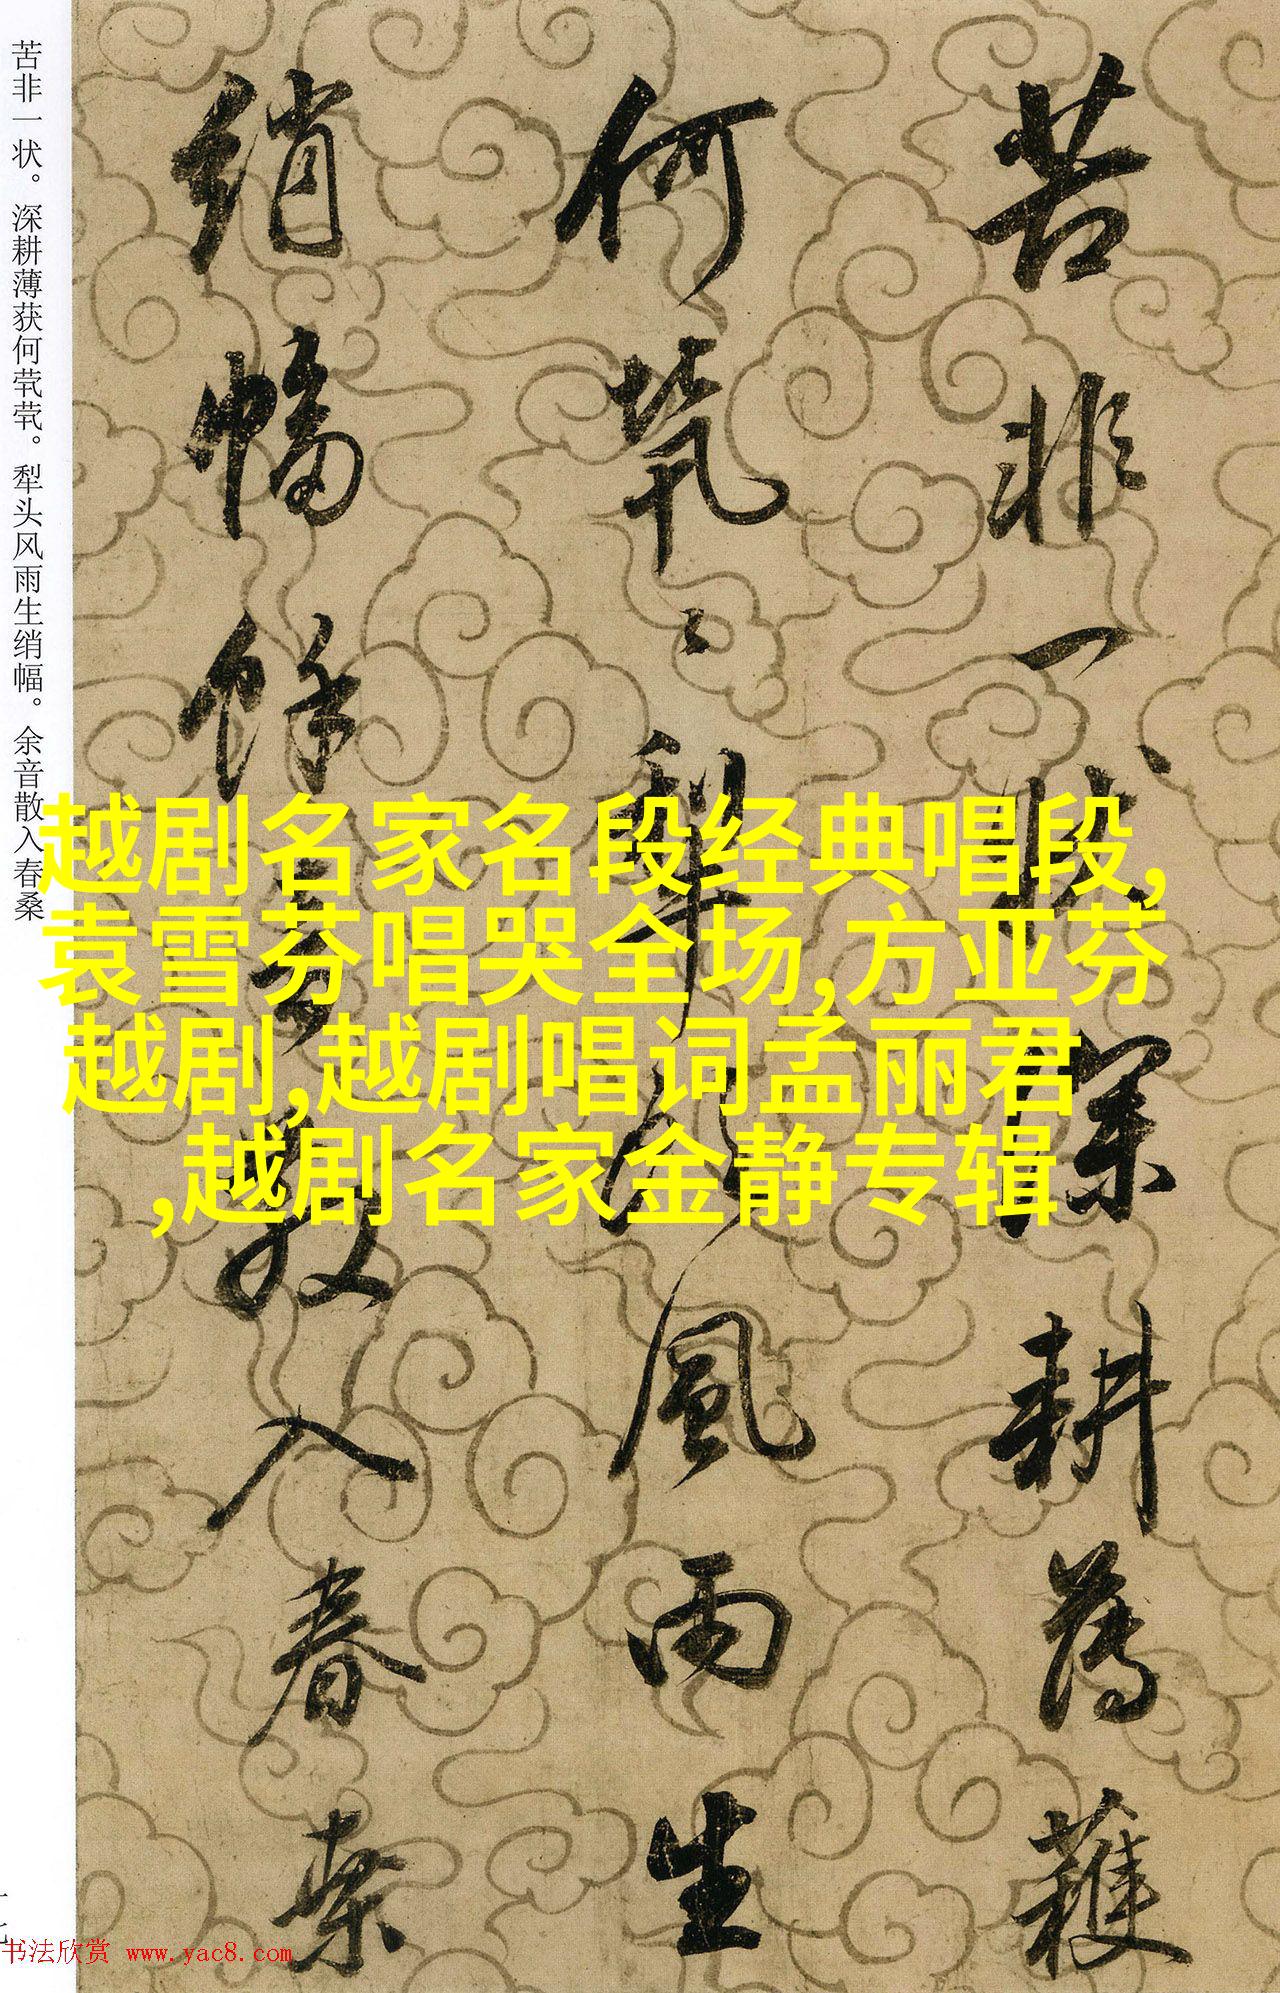 苦非一状。深耕薄获何茕茕。犁头风雨生绡幅。余音散入春桑
苦非一状深耕薄穫
何茕〻犁头風雨生
绡幅馀音散入春桑
越剧名家名段经典唱段,
袁雪芬唱哭全场,方亚芬
越剧,越剧唱词孟丽君
,越剧名家金静专辑
书法欣赏 www.yac8.com